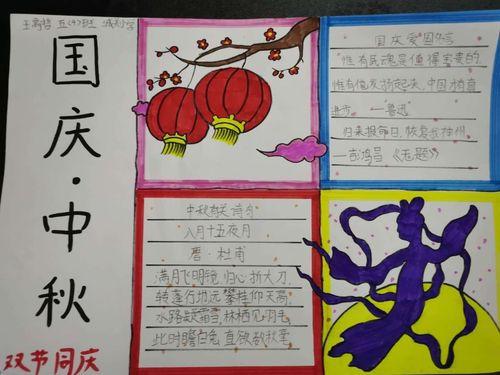 五(4)班
国庆·中秋
双节同庆
国庆爱国名言
惟有民魂是值得宝贵的
惟有他发扬起来,中国才有真
进步 —鲁迅
归来报命日,恢复我神州
—吉鸿昌《无题》
中秋有关诗句
八月十五夜月
唐·杜甫
满月飞明镜,归心折大刀.
转蓬行地远,攀桂仰天高.
水路疑霜雪,林栖见羽毛
此时瞻白兔,直欲数秋毫